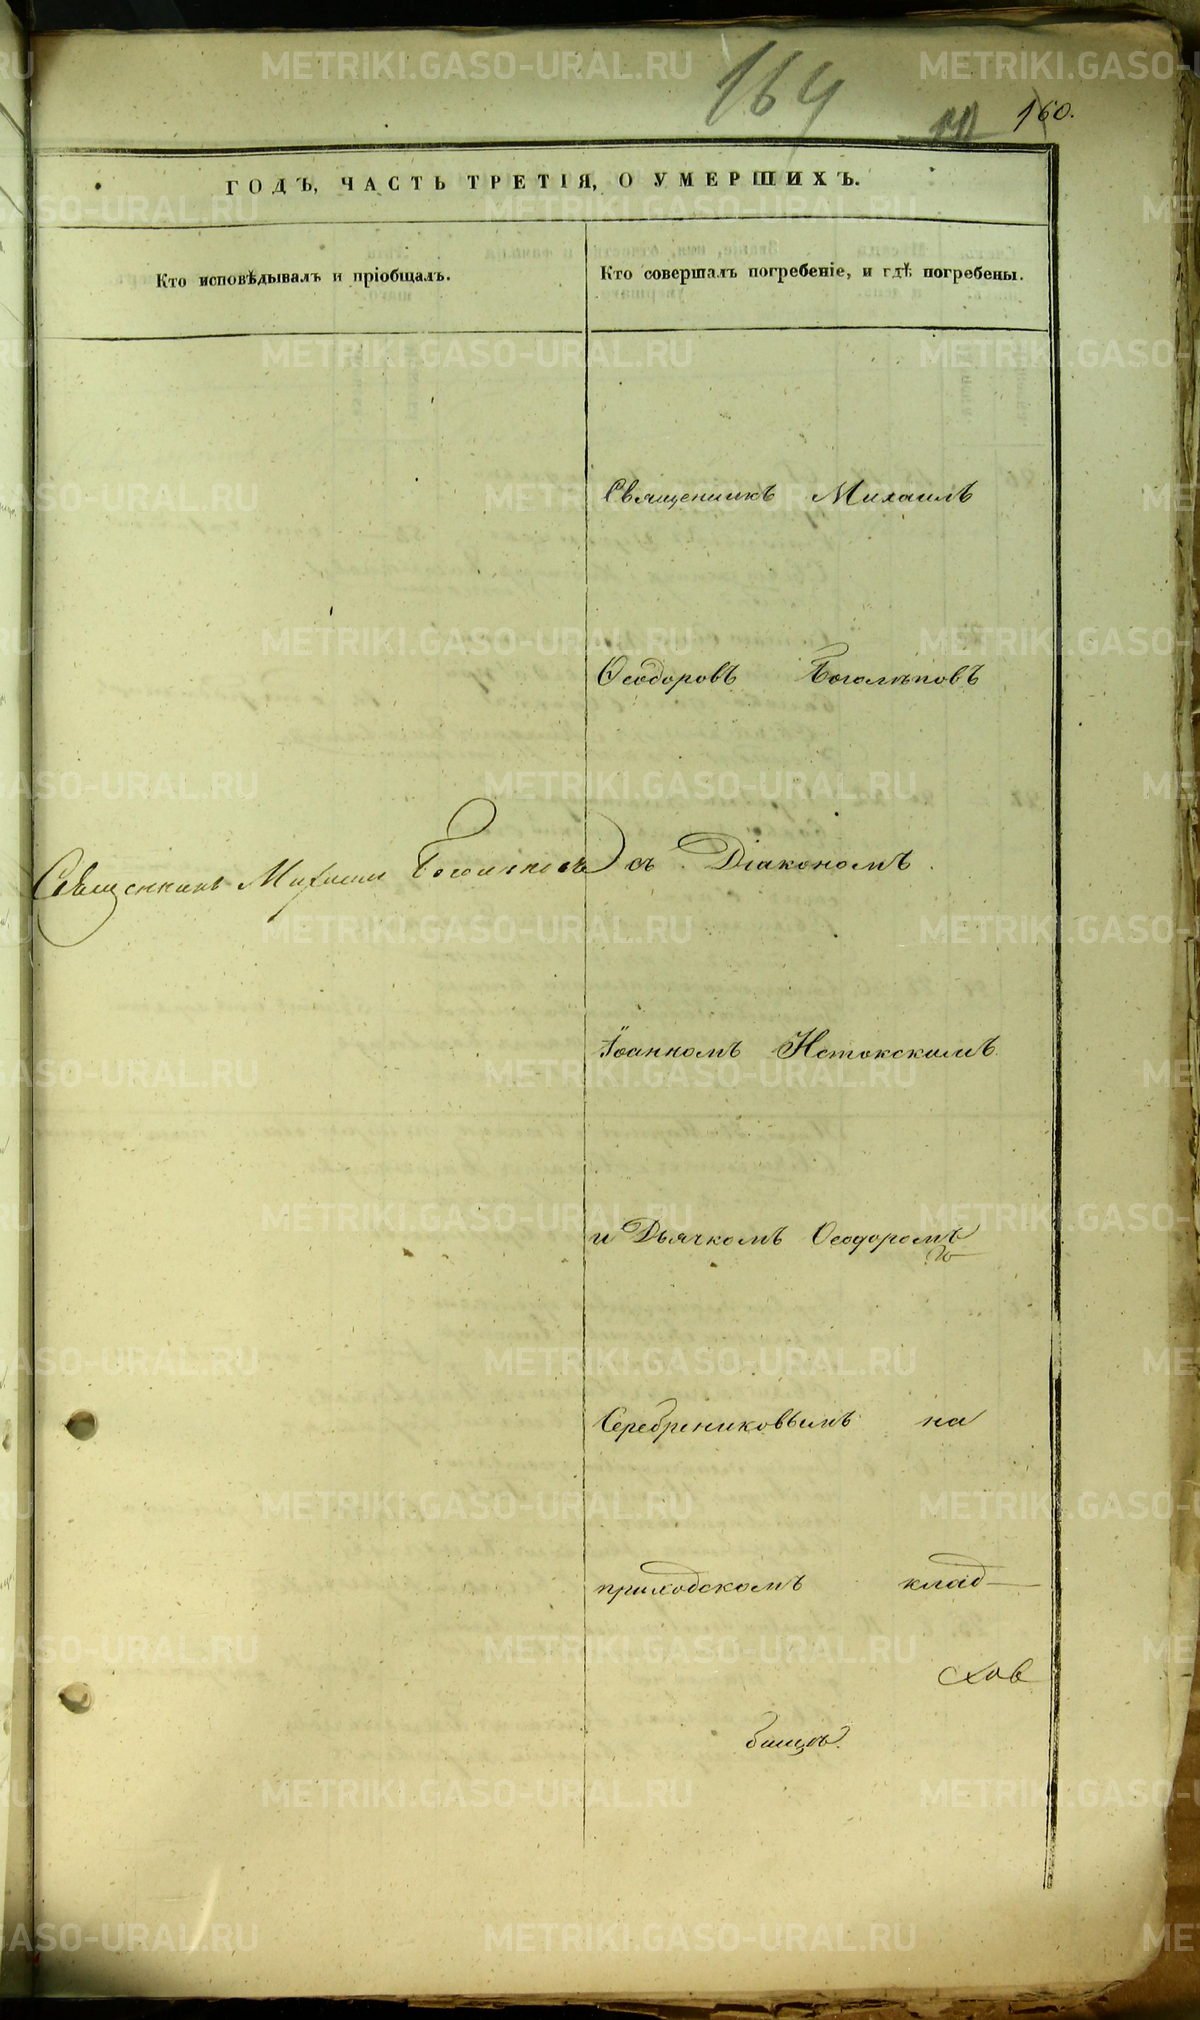 164
160.
ГОДЪ, ЧАСТЬ ТРЕТІЯ, О УМЕРШИХЪ.
Кто исповѣдывалъ и пріобщалъ.
Кто совершалъ погребеніе, и гдѣ погребены.
Священникъ Михаилъ
Ѳеодоровъ Боголѣповъ
Священникъ Михаилъ Боголѣповъ
съ Діакономъ
Іоанномъ
и Дьячкомъ Ѳеодоромъ
Серебрениковымъ на
приходскомъ клад
бищѣ.
METRIKI.GASO-URAL.RU